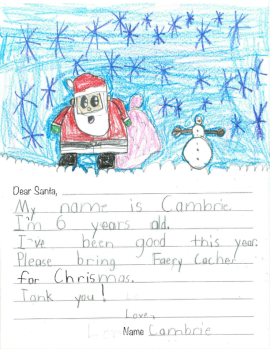 Dear Santa,
My name is Cambrie.
I'm 6 years old.
I've been good this year.
Please bring Faery Cache
for Chrismas.
Tank you!
Love,
Name Cambrie